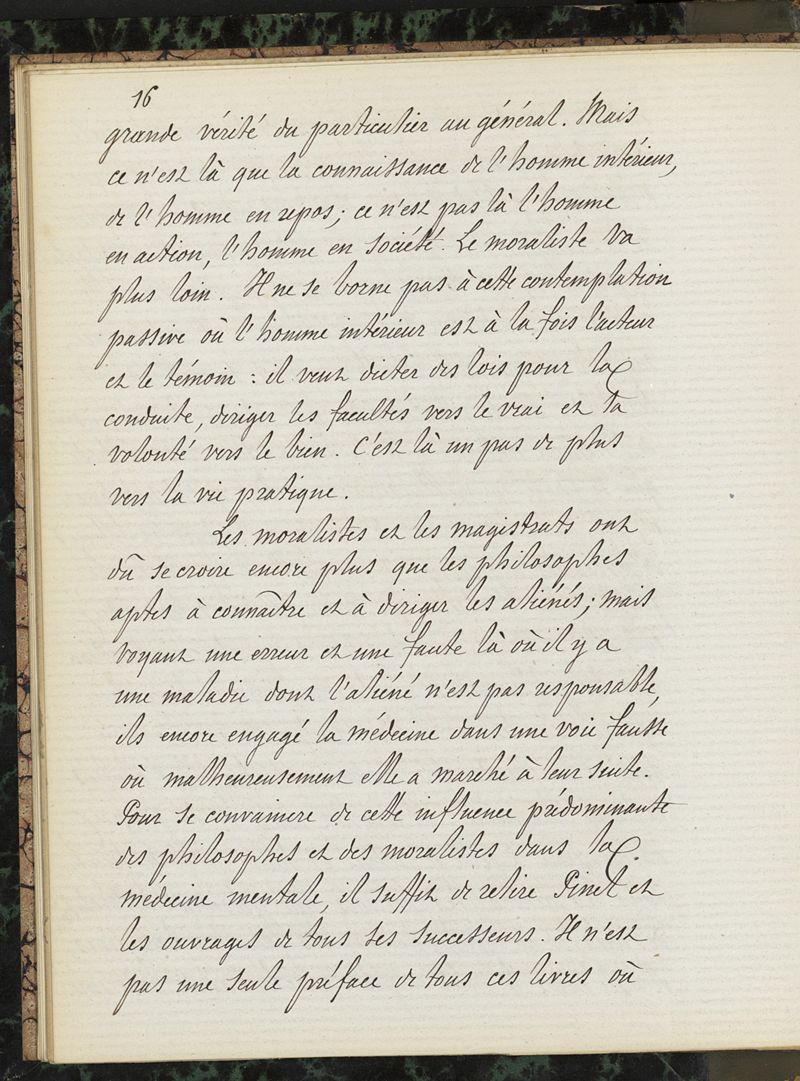 16
grande vérité du particulier au général. Mais
ce n'est là que la connaissance de l'homme intérieur,
de l'homme en repos; ce n'est pas là l'homme
en action, l'homme en société. Le moraliste va
plus loin. Il ne se borne pas à cette contemplation
passive où l'homme intérieur est à la fois l'acteur
et le témoin : il veut dicter des lois pour la
conduite, diriger les facultés vers le vrai et la
volonté vers le bien. C'est là un pas de plus
vers la vie pratique.
Les moralistes et les magistrats ont
dû se croire encore plus que les philosophes
aptes à connaître et à diriger les aliénés; mais
voyant une erreur et une faute là où il y a
une maladie dont l'aliéné n'est pas responsable,
ils encore engagé la médecine dans une voie fausse
où malheureusement elle a marché à leur suite.
Pour se convaincre de cette influence prédominante
des philosophes et des moralistes dans la
médecine mentale, il suffit de relire Pinel et
les ouvrages de tous ses successeurs. Il n'est
pas une seule préface de tous ces livres où